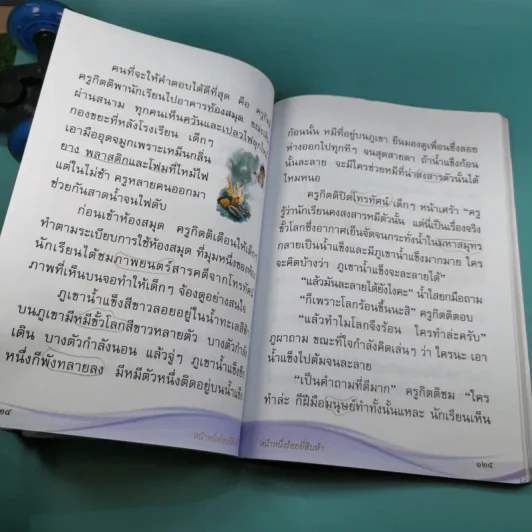 คนที่จะให้คำตอบได้ดีที่สุด คือ ครูกิตติ
ครูกิตติพานักเรียนไปอาคารห้องสมุด ขณะเดิน
ผ่านสนาม ทุกคนเห็นควันและเปลวไฟลุก
กองขยะที่หลังโรงเรียน เด็กๆ
เอามืออุดจมูกเพราะเหม็นกลิ่น
ยาง พลาสติกและโฟมที่ไหม้ไฟ
แต่ในไม่ช้า ครูหลายคนออกมา
ช่วยกันสาดน้ำจนไฟดับ
ก่อนเข้าห้องสมุด ครูกิตติเตือนให้เด็กๆ
ทำตามระเบียบการใช้ห้องสมุด ที่มุมหนึ่งของห้อง
นักเรียนได้ชมภาพยนตร์สารคดีจากโทรทัศน์
ภาพที่เห็นบนจอทำให้เด็กๆ จ้องดูอย่างสนใจ
ภูเขาน้ำแข็งสีขาวลอยอยู่ในน้ำทะเลสี
บนภูเขามีหมีขั้วโลกสีขาวหลายตัว บางตัวกำลัง
เดิน บางตัวกำลังนอน แล้วจู่ๆ ภูเขาน้ำแข็ง
หนึ่งก็พังทลายลง มีหมีตัวหนึ่งติดอยู่บนน้ำแข็ง
หน้าหนึ่งร้อยยี่สิบ
๒๔
ก้อนนั้น หมีที่อยู่บนภูเขา ยืนมองดูเพื่อนซึ่งลอย
ห่างออกไปทุกทีๆ จนสุดสายตา ถ้าน้ำแข็งก้อน
นั้นละลาย จะมีใครช่วยหมีที่น่าสงสารตัวนั้นได้
ไหมหนอ
ครูกิตติปิดโทรทัศน์ เด็กๆ หน้าเศร้า “ครู
รู้ว่านักเรียนคงสงสารหมีตัวนั้น แต่นี่เป็นเรื่องจริง
ขั้วโลกซึ่งอากาศเย็นจัดจนกระทั่งน้ำในมหาสมุทร
กลายเป็นน้ำแข็งและมีภูเขาน้ำแข็งมากมาย ใคร
จะคิดบ้างว่า ภูเขาน้ำแข็งจะละลายได้”
“แล้วมันละลายได้ยังไงคะ” น้ำใสยกมือถาม
“ก็เพราะโลกร้อนขึ้นนะสิ” ครูกิตติตอบ
“แล้วทำไมโลกจึงร้อน ใครทำล่ะครับ”
ภูผาถาม ขณะที่ใจกำลังคิดเล่นๆ ว่า ใครนะ เอา
น้ำแข็งไปต้มจนละลาย
“เป็นคำถามที่ดีมาก” ครูกิตติชม “ใคร
ทำล่ะ ก็ฝีมือมนุษย์ทำทั้งนั้นแหละ นักเรียนเห็น
หน้าหนึ่งร้อยยี่สิบห้า
๑๒๕